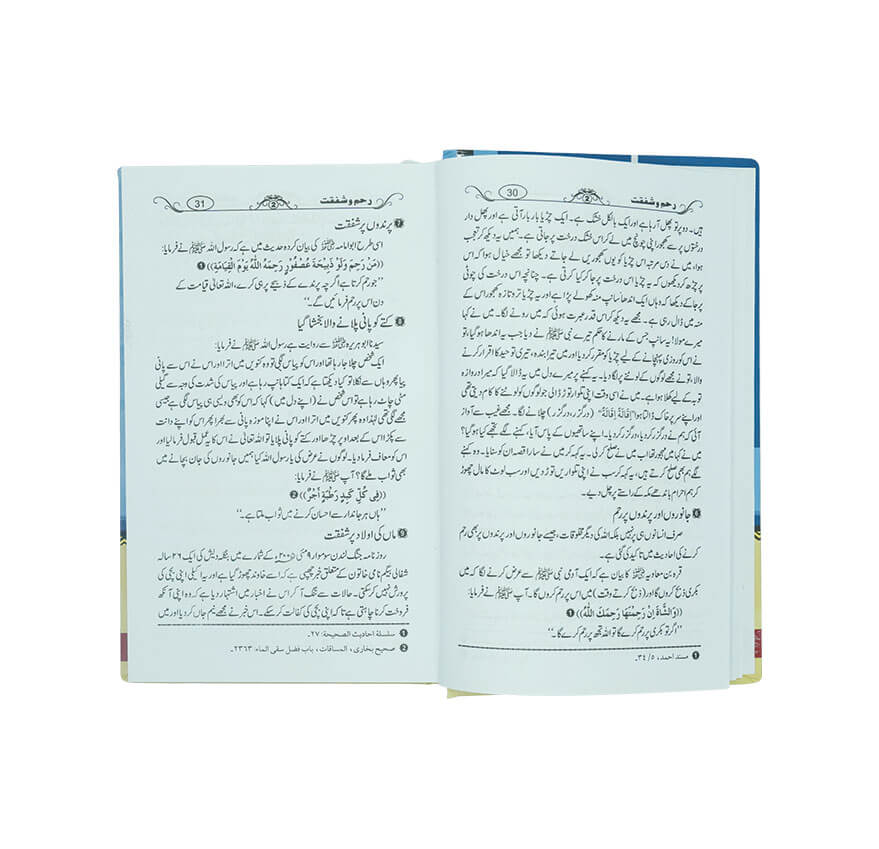 رحم و شفقت 2 30
ہیں۔ دو پر تو پھل آ رہا ہے اور ایک بالکل خشک ہے۔ ایک چڑیا بار بار آتی ہے اور پھل دار
درختوں پر سے کھجور اپنی چونچ میں لے کر اس خشک درخت پر جاتی ہے۔ ہمیں یہ دیکھ کر تعجب
ہوا، میں نے دس مرتبہ اس چڑیا کو یوں کھجوریں لے جاتے دیکھا تو مجھے خیال ہوا کہ اس
پر چڑھ کر دیکھوں کہ یہ چڑیا اس درخت پر جا کر کیا کرتی ہے۔ چنانچہ اس درخت کی چوٹی
پر جا کے دیکھا کہ وہاں ایک اندھا سانپ منہ کھولے پڑا ہے اور یہ چڑیا تر و تازہ کھجور اس کے
منہ میں ڈال رہی ہے۔ مجھے یہ دیکھ کر اس قدر عبرت ہوئی کہ میں رونے لگا۔ میں نے کہا
میرے مولا! یہ سانپ جس کے مارنے کا حکم تیرے نبی ﷺ نے دیا جب یہ اندھا ہو گیا، تو
نے اس کو روزی پہنچانے کے لیے چڑیا کو مقرر کر دیا اور میں تیرا بندہ، تیری توحید کا اقرار کرنے
والا، تو نے مجھے لوگوں کے لوٹنے پر لگا دیا۔ یہ کہنے پر میرے دل میں یہ ڈالا گیا کہ میرا دروازہ
توبہ کے لیے کھلا ہوا ہے۔ میں نے اسی وقت اپنی تلوار توڑ ڈالی جو لوگوں کو لوٹنے کا کام دیتی تھی
اور اپنے سر پر خاک ڈالتا ہوا "اِقَالَةً اِقَالَةً" (درگزر، درگزر) چلانے لگا۔ مجھے غیب سے آواز
آئی کہ ہم نے درگزر کر دیا، درگزر کر دیا۔ اپنے ساتھیوں کے پاس آیا، کہنے لگے تجھے کیا ہو گیا؟
میں نے کہا میں مہجور تھا اب میں نے صلح کر لی۔ یہ کہہ کر میں نے سارا قصہ ان کو سنایا۔ وہ کہنے
لگے ہم بھی صلح کرتے ہیں، یہ کہہ کر سب نے اپنی تلواریں توڑ دیں اور سب لوٹ کا مال چھوڑ
کر ہم احرام باندھ مکہ کے راستے پر چل دیے۔
6 جانوروں اور پرندوں پر رحم
صرف انسانوں ہی پر نہیں بلکہ اللہ کی دیگر مخلوقات، جیسے جانوروں اور پرندوں پر بھی رحم
کرنے کی احادیث میں تاکید کی گئی ہے۔
قرہ بن معاویہ کا بیان ہے کہ ایک آدمی نبی ﷺ سے عرض کرنے لگا کہ میں
بکری ذبح کروں گا اور (ذبح کرتے وقت) میں اس پر رحم کروں گا۔ آپ ﷺ نے فرمایا:
((وَالشَّاةُ اِنْ رَحِمْتَهَا رَحِمَكَ اللّٰهُ)) ❶
''اگر تو بکری پر رحم کرے گا تو اللہ تجھ پر رحم کرے گا۔''
❶ مسند احمد، ٥/ ٣٤۔
رحم و شفقت 2 31
7 پرندوں پر شفقت
اسی طرح ابوامامہ کی بیان کردہ حدیث میں ہے کہ رسول اللہ ﷺ نے فرمایا:
((مَنْ رَحِمَ وَلَوْ ذَبِيْحَةَ عُصْفُوْرٍ رَحِمَهُ اللّٰهُ يَوْمَ الْقِيَامَةِ)) ❶
''جو رحم کرتا ہے اگرچہ پرندے کے ذبیحے پر ہی کرے، اللہ تعالیٰ قیامت کے
دن اس پر رحم فرمائیں گے۔''
8 کتے کو پانی پلانے والا بخشا گیا
سیدنا ابوہریرہ سے روایت ہے رسول اللہ ﷺ نے فرمایا:
ایک شخص چلا جا رہا تھا اور اس کو پیاس لگی تو وہ کنویں میں اترا اور اس نے اس سے پانی
پیا پھر وہاں سے نکلا تو کیا دیکھتا ہے کہ ایک کتا ہانپ رہا ہے اور پیاس کی شدت کی وجہ سے گیلی
مٹی چاٹ رہا ہے تو اس شخص نے (اپنے دل میں) کہا کہ اس کو بھی ویسی ہی پیاس لگی ہے جیسی
مجھے لگی تھی لہٰذا وہ پھر کنویں میں اترا اور اس نے اپنا موزہ پانی سے بھرا پھر اس کو اپنے دست
سے پکڑا اس کے بعد اوپر چڑھا اور کتے کو پانی پلایا تو اللہ تعالیٰ نے اس کا یہ عمل قبول فرما لیا اور
اس کو معاف فرما دیا۔ لوگوں نے عرض کی یا رسول اللہ کیا ہمیں جانوروں کی جان بچانے میں
بھی ثواب ملے گا؟ آپ ﷺ نے فرمایا:
((فِى كُلِّ كَبِدٍ رَطْبَةٍ اَجْرٌ)) ❷
''ہاں ہر جاندار سے احسان کرنے میں ثواب ملتا ہے۔''
9 ماں کی اولاد پر شفقت
روزنامہ جنگ لندن سوموار ٩ مئی ٢٠٠٥ء کے شمارے میں بنگلہ دیش کی ایک ٢٦ سالہ
شفالی بیگم نامی خاتون کے متعلق خبر چھپی ہے کہ اسے خاوند چھوڑ گیا ہے اور یہ اکیلی اپنی بچی کی
پرورش نہیں کر سکتی۔ حالات سے تنگ آ کر اس نے اخبار میں اشتہار دیا ہے کہ وہ اپنی آنکھ
فروخت کرنا چاہتی ہے تا کہ اپنی بچی کی کفالت کر سکے۔ اس خبر نے مجھے نیم جاں کر دیا اور میں
❶ سلسلة احاديث الصحيحة: ٢٧۔
❷ صحیح بخاری، المساقات، باب فضل سقی الماء: ٢٣٦٣۔